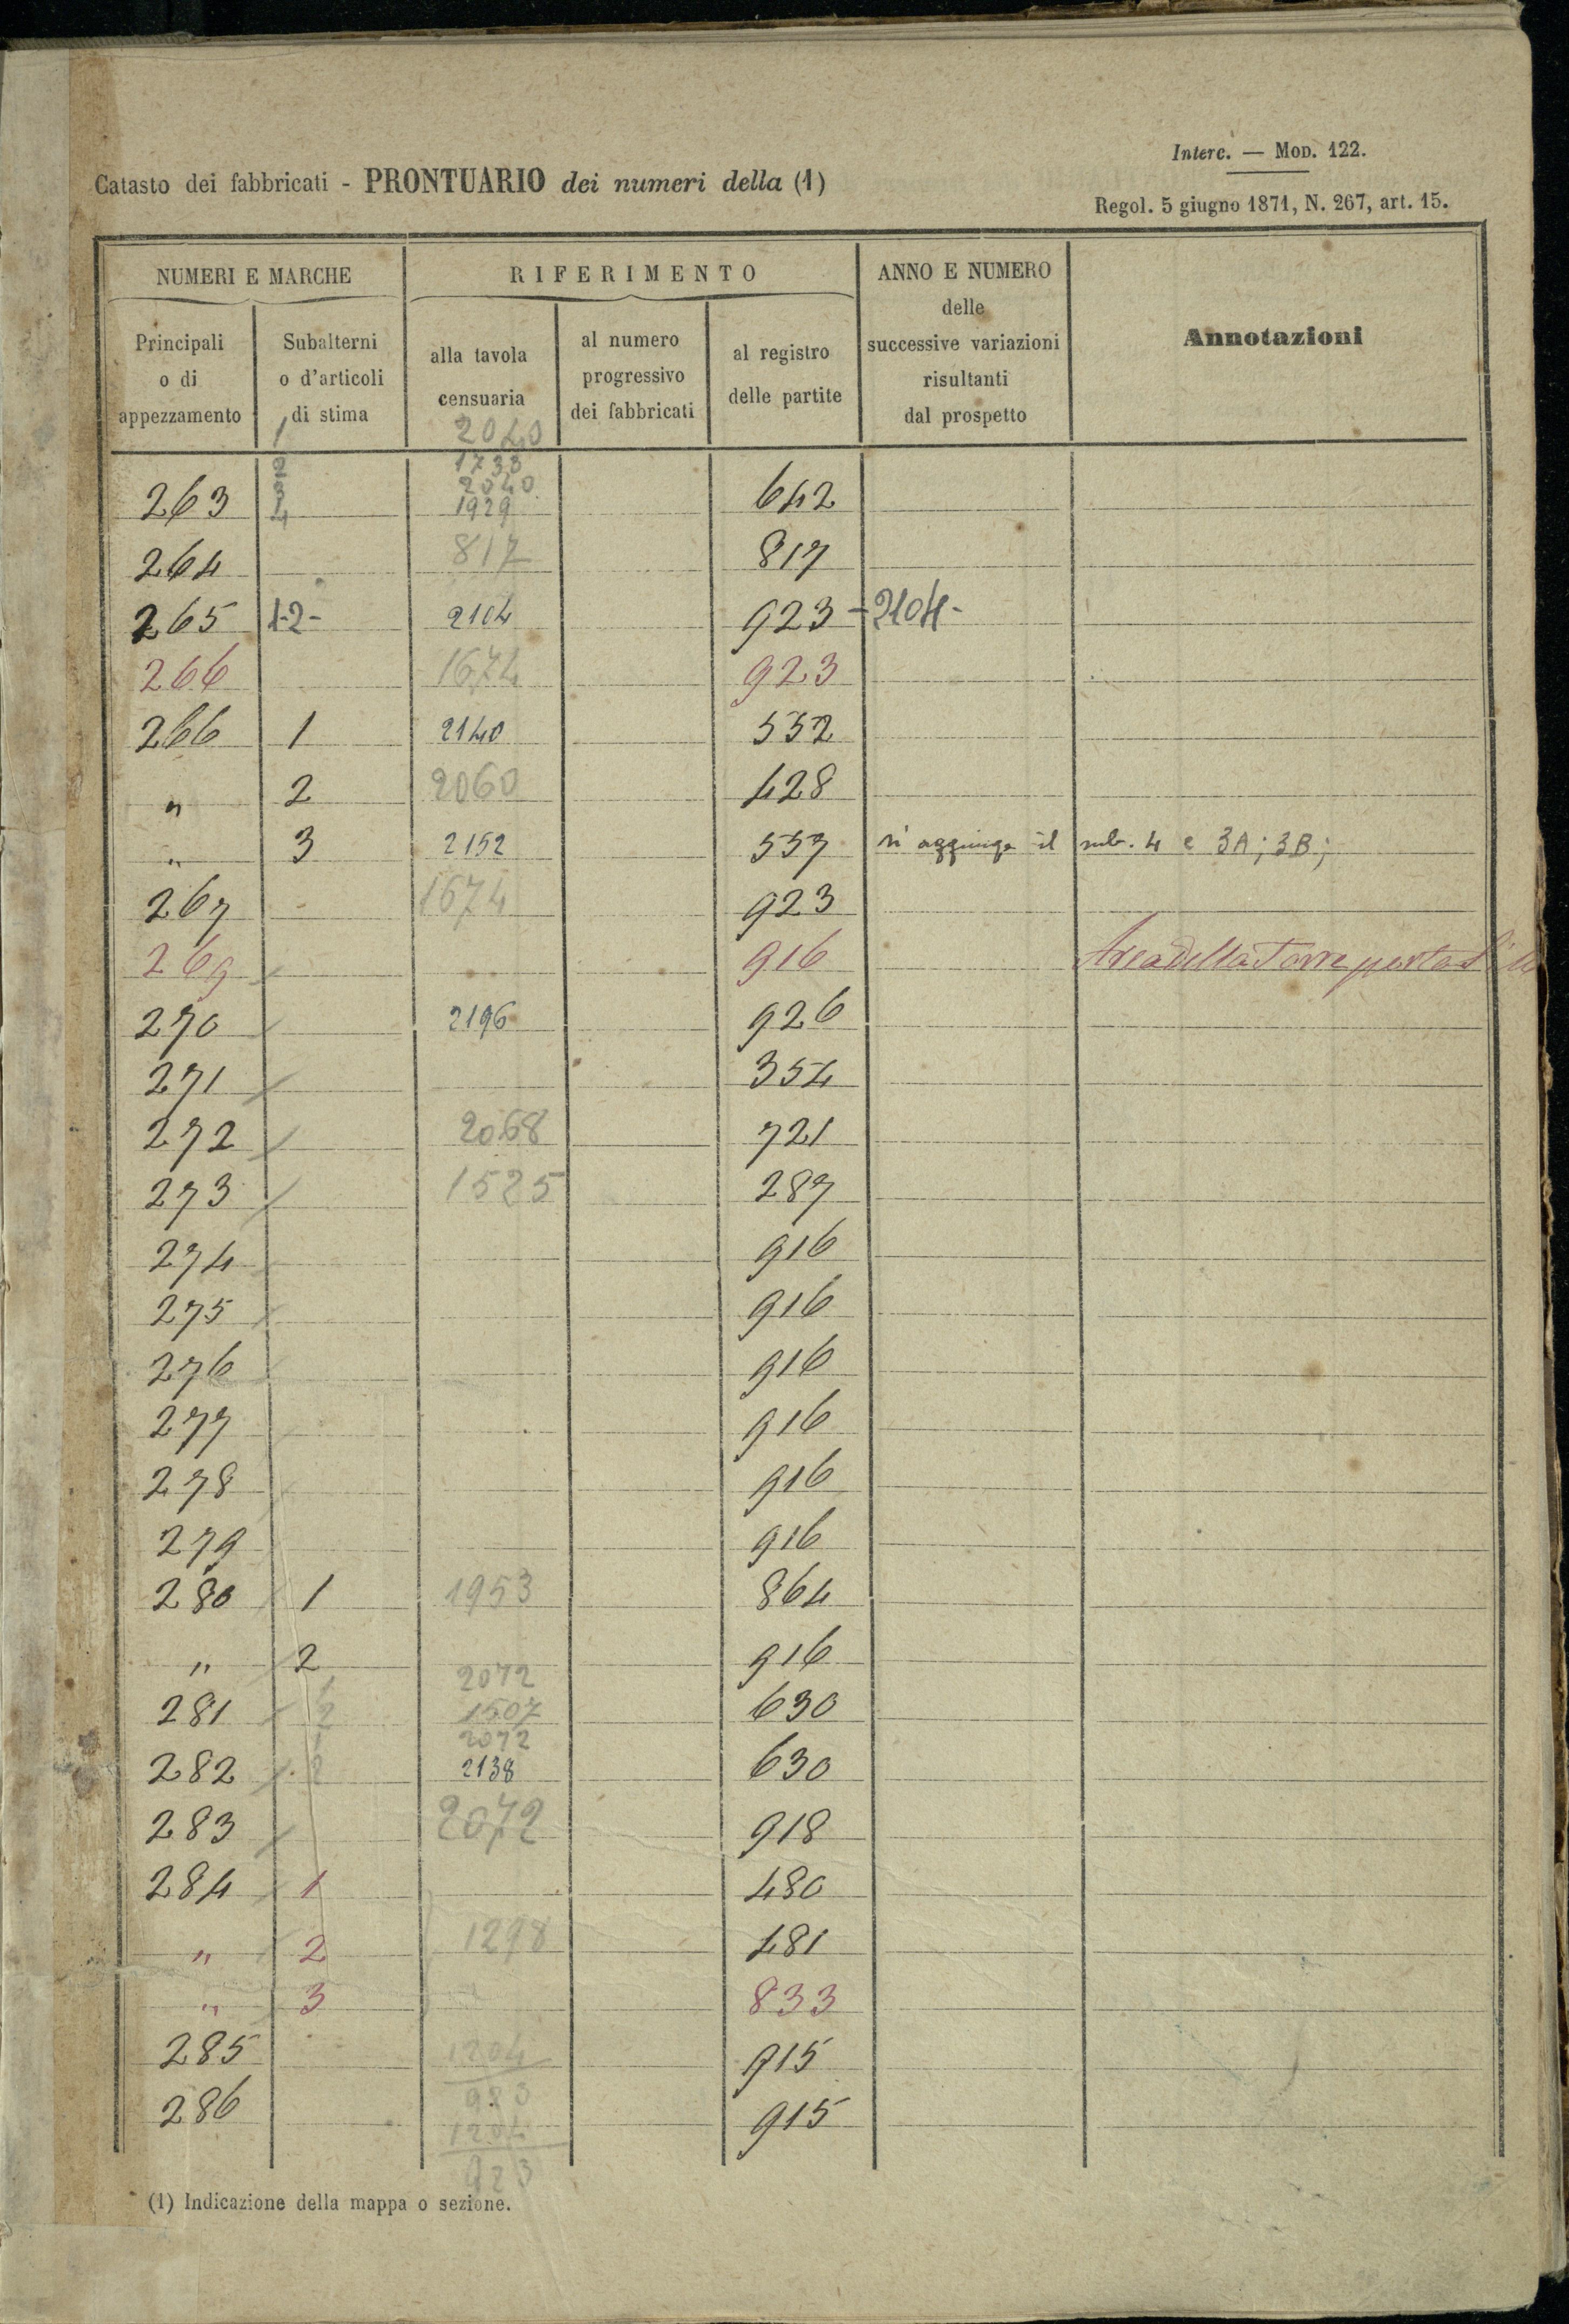 Interc. — MOD. 122.
Catasto dei fabbricati - PRONTUARIO dei numeri della (1)
Regol. 5 giugno 1871, N. 267, art. 15.
NUMERI E MARCHE
RIFERIMENTO
ANNO E NUMERO
delle
successive variazioni
risultanti
dal prospetto
Annotazioni
Principali
o di
appezzamento
Subalterni
o d'articoli
di stima
alla tavola
censuaria
al numero
progressivo
dei fabbricati
al registro
delle partite
1 2040
2 1733
3 2040
263 4 1929 642
264 817 817
265 1-2- 2104 923 -2104-
266 1674 923
266 1 2140 552
" 2 2060 428
" 3 2152 557 si aggiunga il sub. 4 e 3A; 3B;
267 1674 923
269 916 Area della Torre porta
270 2196 926
271 354
272 2068 721
273 1525 287
274 916
275 916
276 916
277 916
278 916
279 916
280 1 1953 864
" 2 916
1 2072
281 2 1507 630
1 2072
282 2 2138 630
283 2072 918
284 1 480
" 2 1298 481
" 3 833
285 1204 915
923
286 1204 915
923
(1) Indicazione della mappa o sezione.